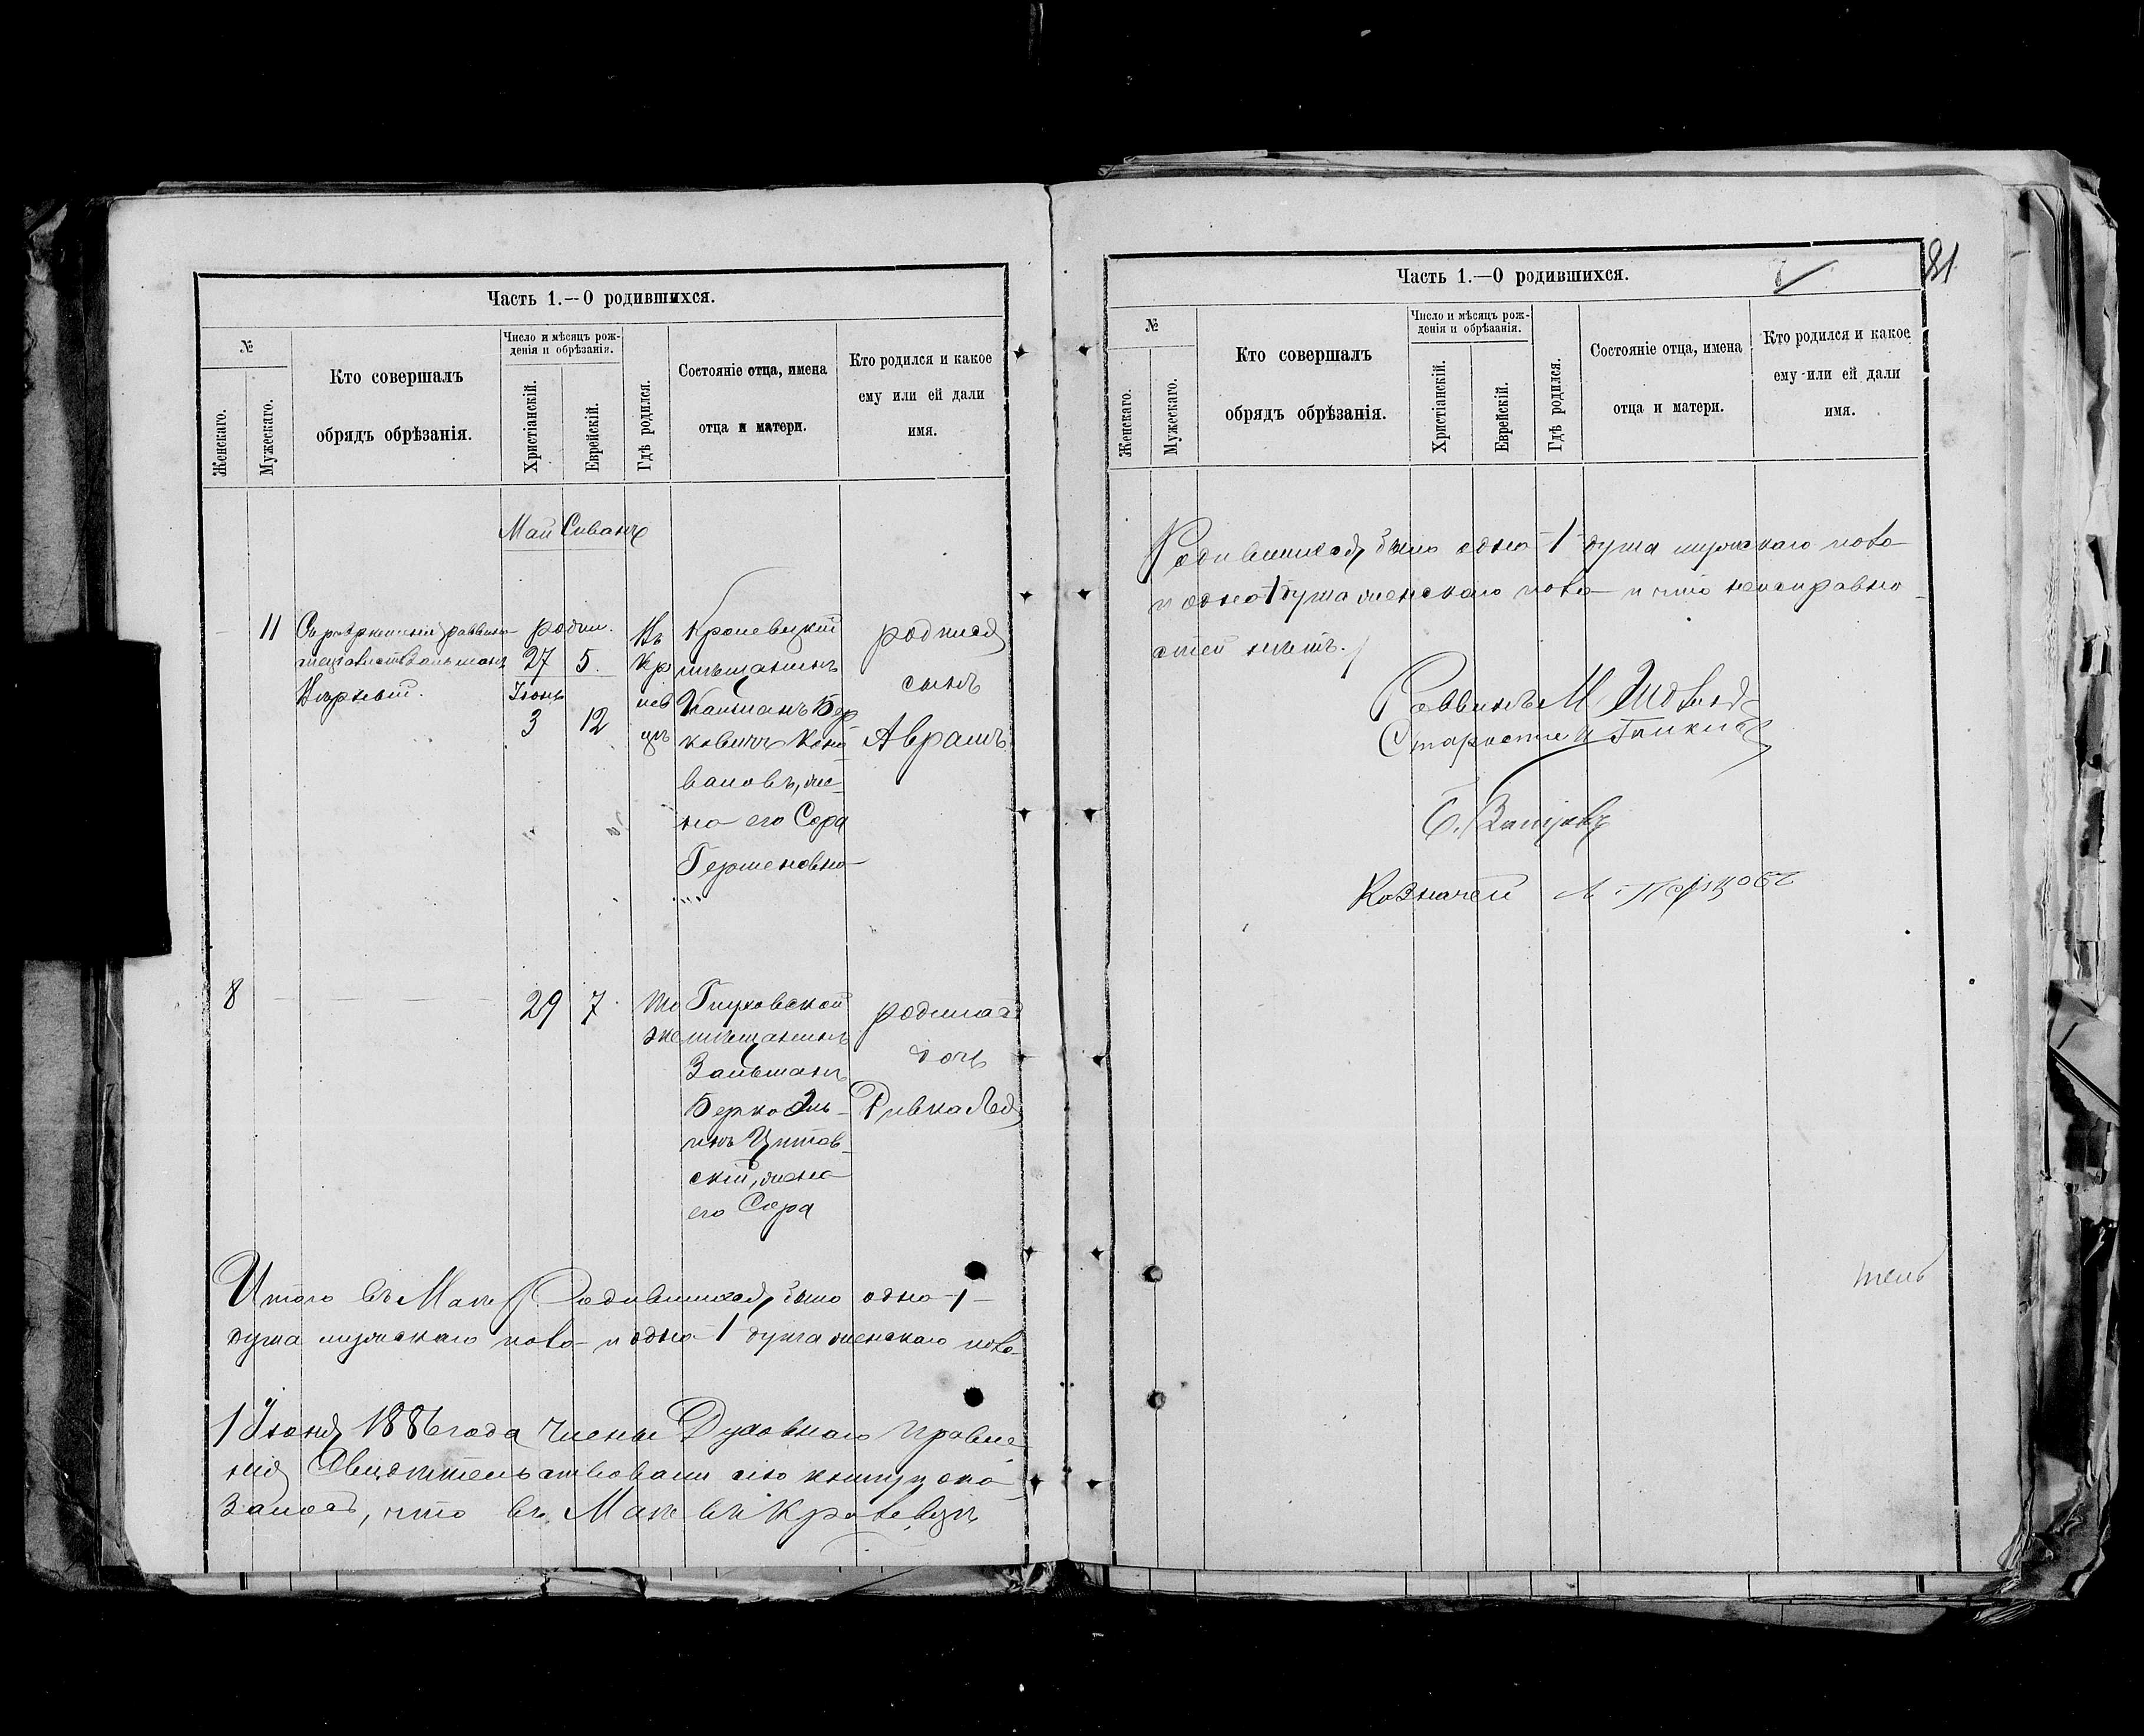 Часть 1.—О родившихся.
№
Женскаго.
Мужескаго.
Кто совершалъ
обрядъ обрѣзанія.
Число и мѣсяцъ рож-
денія и обрѣзанія.
Христіанскій.
Еврейскій.
Гдѣ родился.
Состояніе отца, имена
отца и матери.
Кто родился и какое
ему или ей дали
имя.
Май Сиванъ
11
родил.
27 5.
Іюнь
3 12
Въ
Кро
лев
цѣ
Кролевецкій
мѣщанинъ
Бер
ковичъ
жe-
на его Сора
родился
сынъ
Аврамъ
8
29 7.
То
же
Глуховской
мѣщанинъ
Залманъ
Берко
скій, жена
его Сора
родилась
дочь
Ривка Лея
Итого въ Маѣ Родившихся было одна -1-
душа мужскаго пола и одна 1 душа женскаго пола
1 Іюня 1886 года члены Духовнаго Правле
нія Свидѣтельствовали сію книгу, ока
залось, что въ Маѣ въ Кролевцѣ
Часть 1.—О родившихся.
81
№
Женскаго.
Мужескаго.
Кто совершалъ
обрядъ обрѣзанія.
Число и мѣсяцъ рож-
денія и обрѣзанія.
Христіанскій.
Еврейскій.
Гдѣ родился.
Состояніе отца, имена
отца и матери.
Кто родился и какое
ему или ей дали
имя.
Родившихся было одна -1- душа мужскаго пола
и одна 1 душа женскаго пола и что неисправно
стей нѣтъ.
Раввинъ М
Староста
Казначей Л.
тель